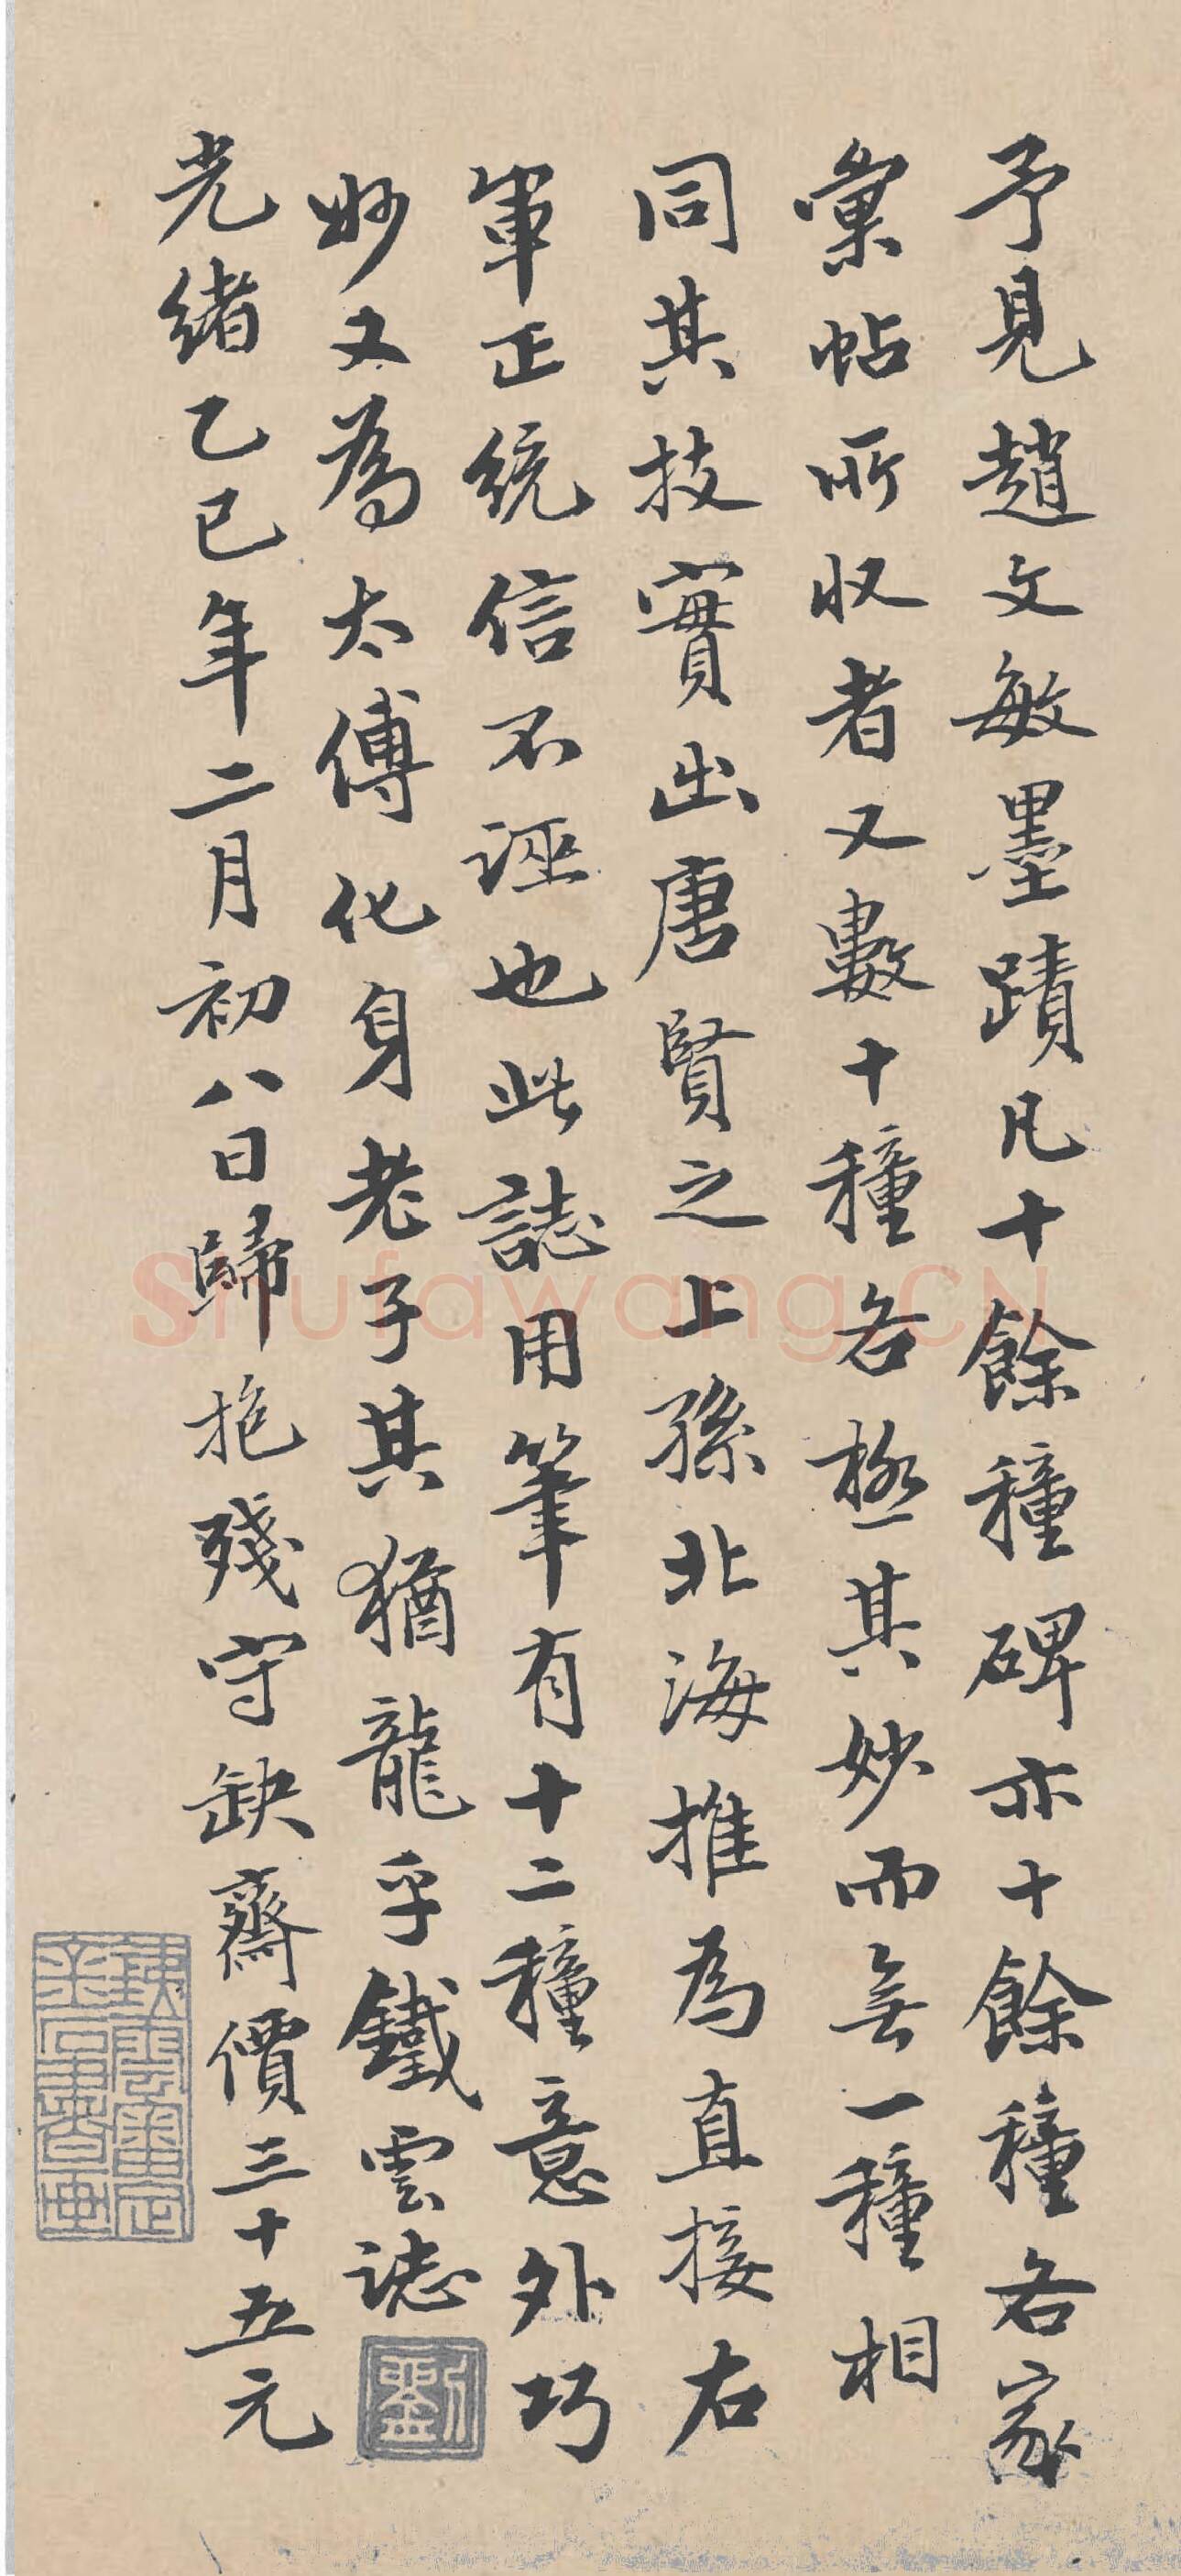 予見趙文敏墨蹟凡十餘種碑亦十餘種各家
彙帖所收者又數十種各極其妙而無一種相
同其技實出唐賢之上孫北海推為直接右
軍正統信不誣也此誌用筆有十二種意外巧
妙又為太傅化身老子其猶龍乎鐵雲誌
劉
光緒乙巳年二月初八日歸抱殘守缺齋價三十五元
鐵雲審定
金石書画
Shufawang.CN